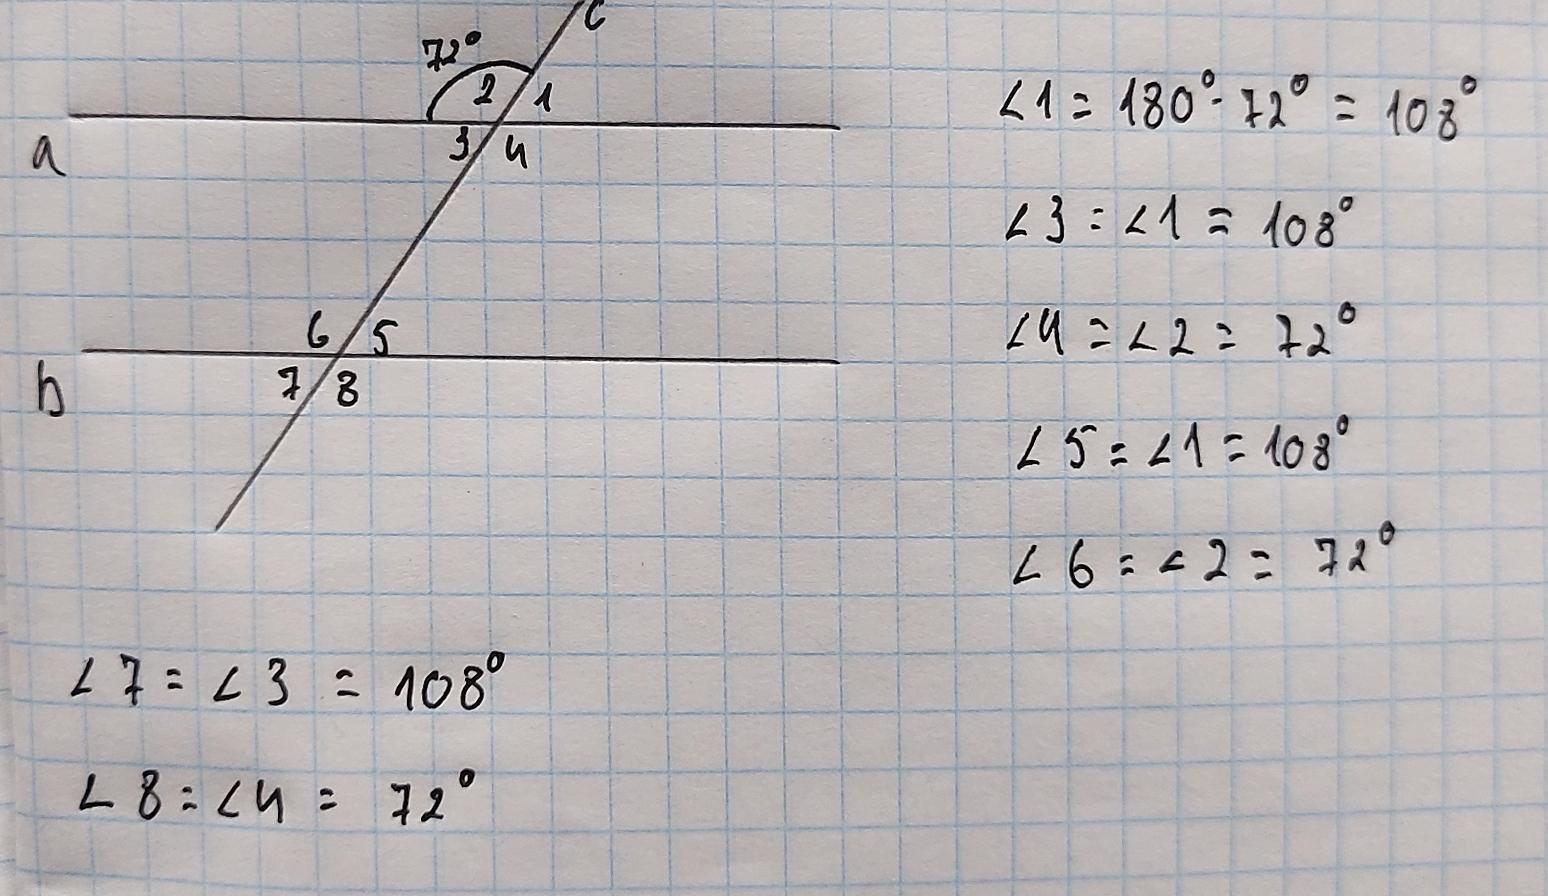 c
72°
2 1
a
3 4
6 5
b
7 8
∠1 = 180° - 72° = 108°
∠3 = ∠1 = 108°
∠4 = ∠2 = 72°
∠5 = ∠1 = 108°
∠6 = ∠2 = 72°
∠7 = ∠3 = 108°
∠8 = ∠4 = 72°